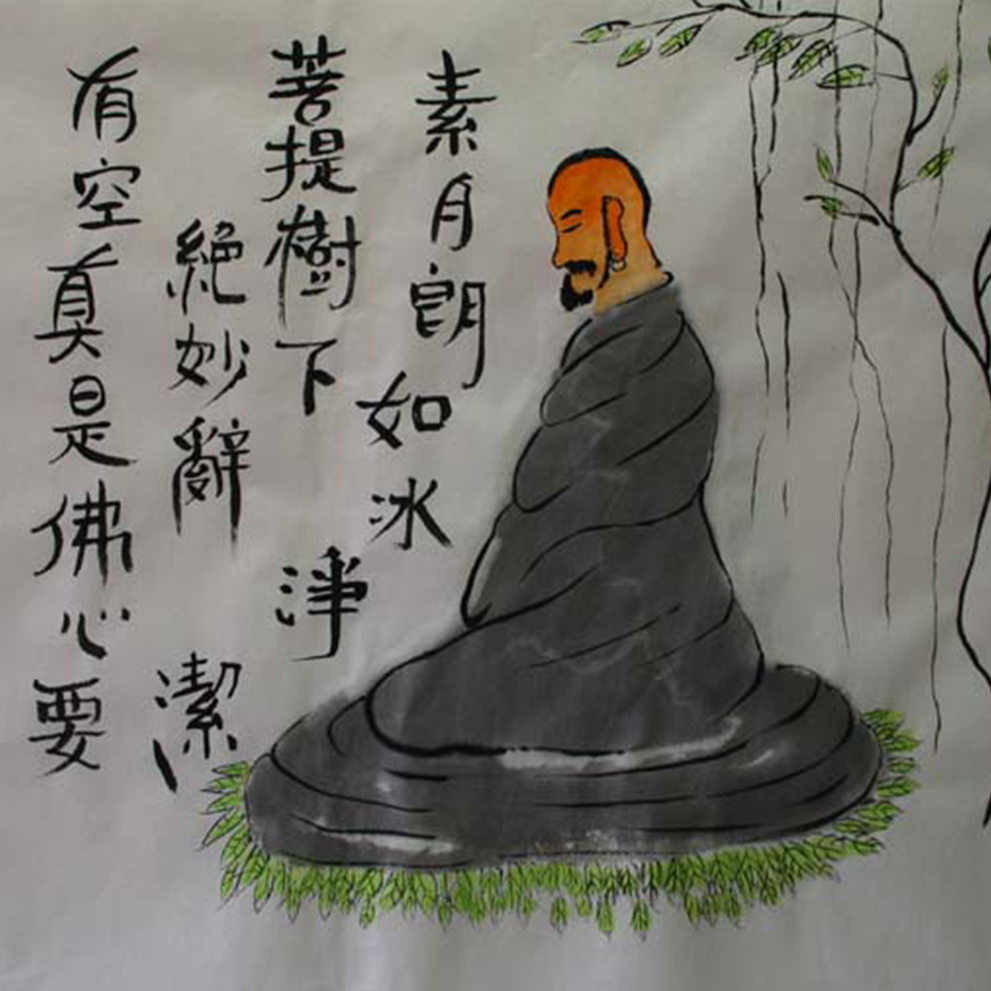 素月朗如冰
菩提樹下淨
絕妙辭潔
有空真是佛心要